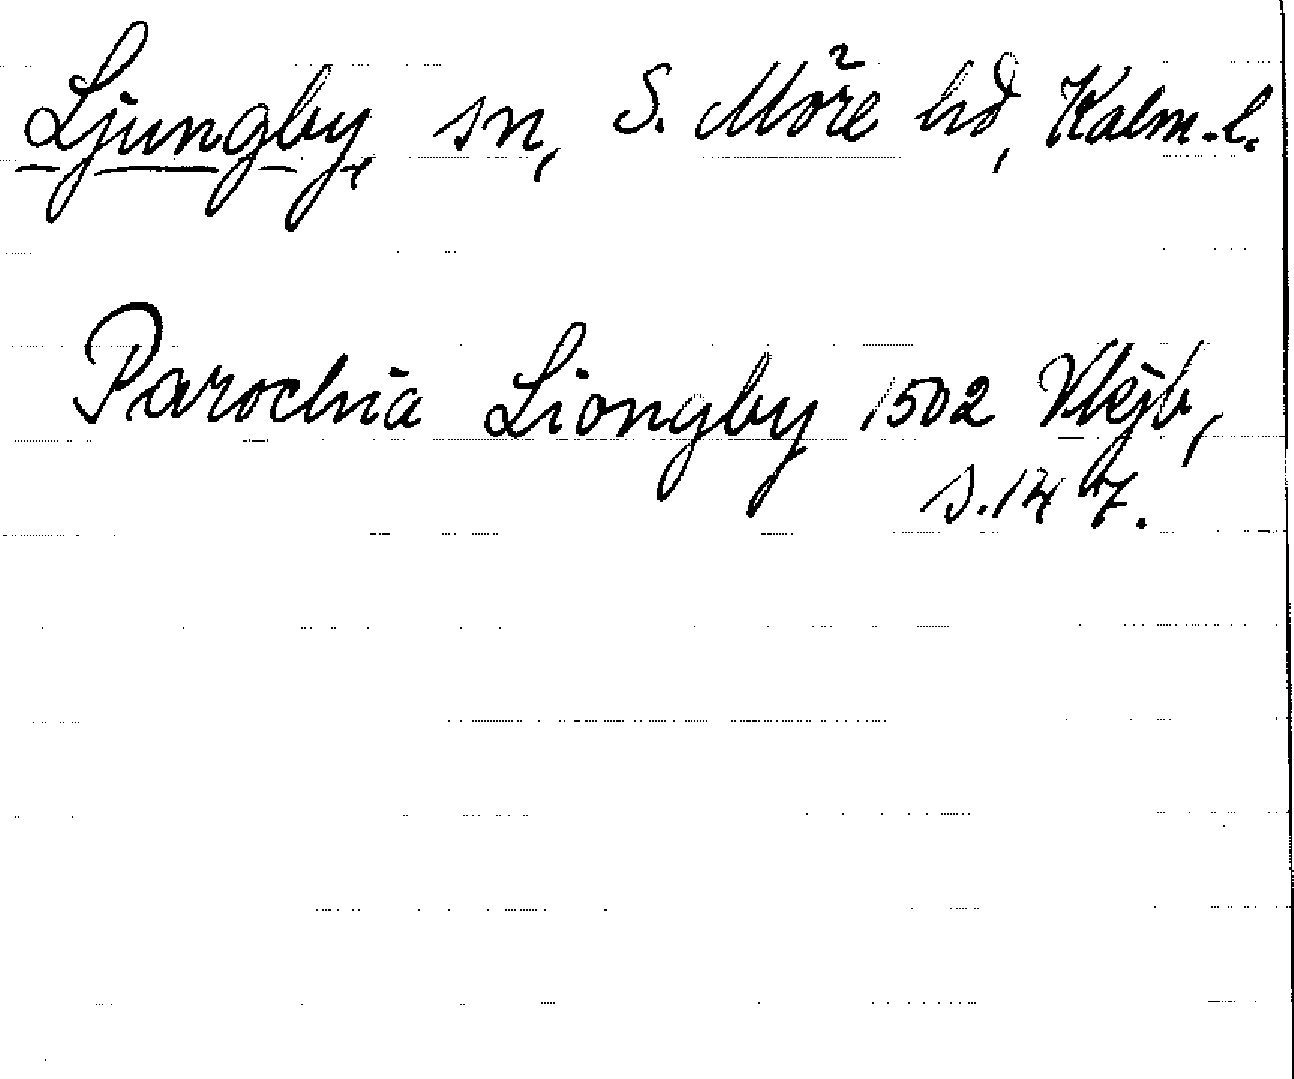 Ljungby, sn, S. Möre hd, Kalm. l.
Parochia Liongby 1502 Vkjb,
s. 147.